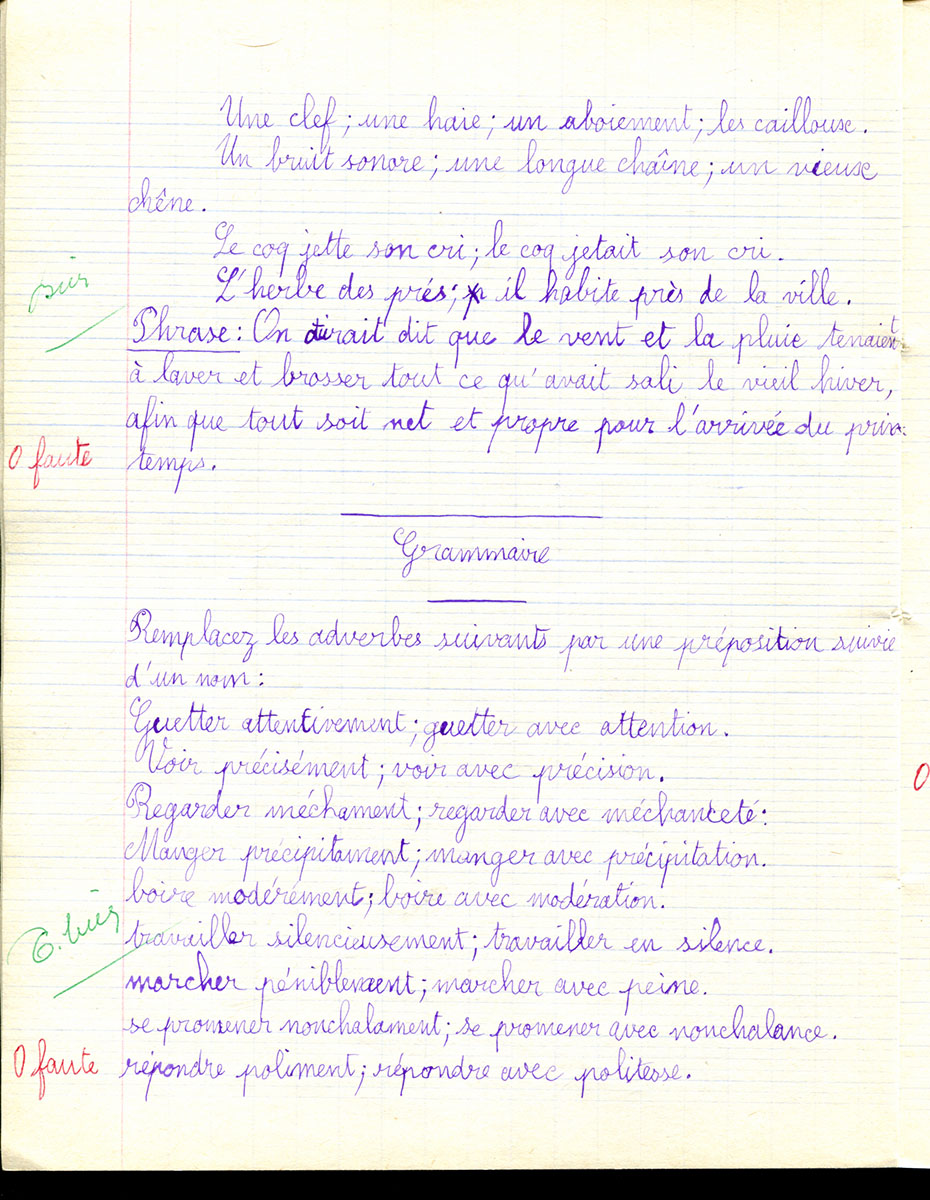 Une clef ; une haie ; un aboiement ; les cailloux.
Un bruit sonore ; une longue chaîne ; un vieux
chêne.
Le coq jette son cri ; le coq jetait son cri.
L'herbe des prés ; il habite près de la ville.
Phrase : On dirait dit que le vent et la pluie tenaient
à laver et brosser tout ce qu'avait sali le vieil hiver,
afin que tout soit net et propre pour l'arrivée du prin-
0 faute temps.
Grammaire
Remplacez les adverbes suivants par une préposition suivie
d'un nom :
Guetter attentivement ; guetter avec attention.
Voir précisément ; voir avec précision.
0
Regarder méchament ; regarder avec méchanceté :
Manger précipitament ; manger avec précipitation.
boire modérément ; boire avec modération.
T. bien
travailler silencieusement ; travailler en silence.
marcher péniblement ; marcher avec peine.
se promener nonchalament ; se promener avec nonchalance.
0 faute répondre poliment ; répondre avec politesse.